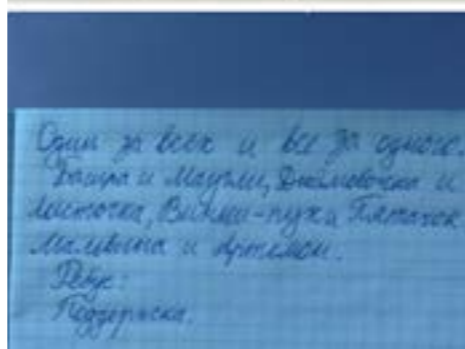 Один за всех и все за одного.
Багира и Маугли, Дюймовочка и
ласточка, Винни-пух и Пятачок
Мальвина и Артемон.
Ребус:
Поддержка.